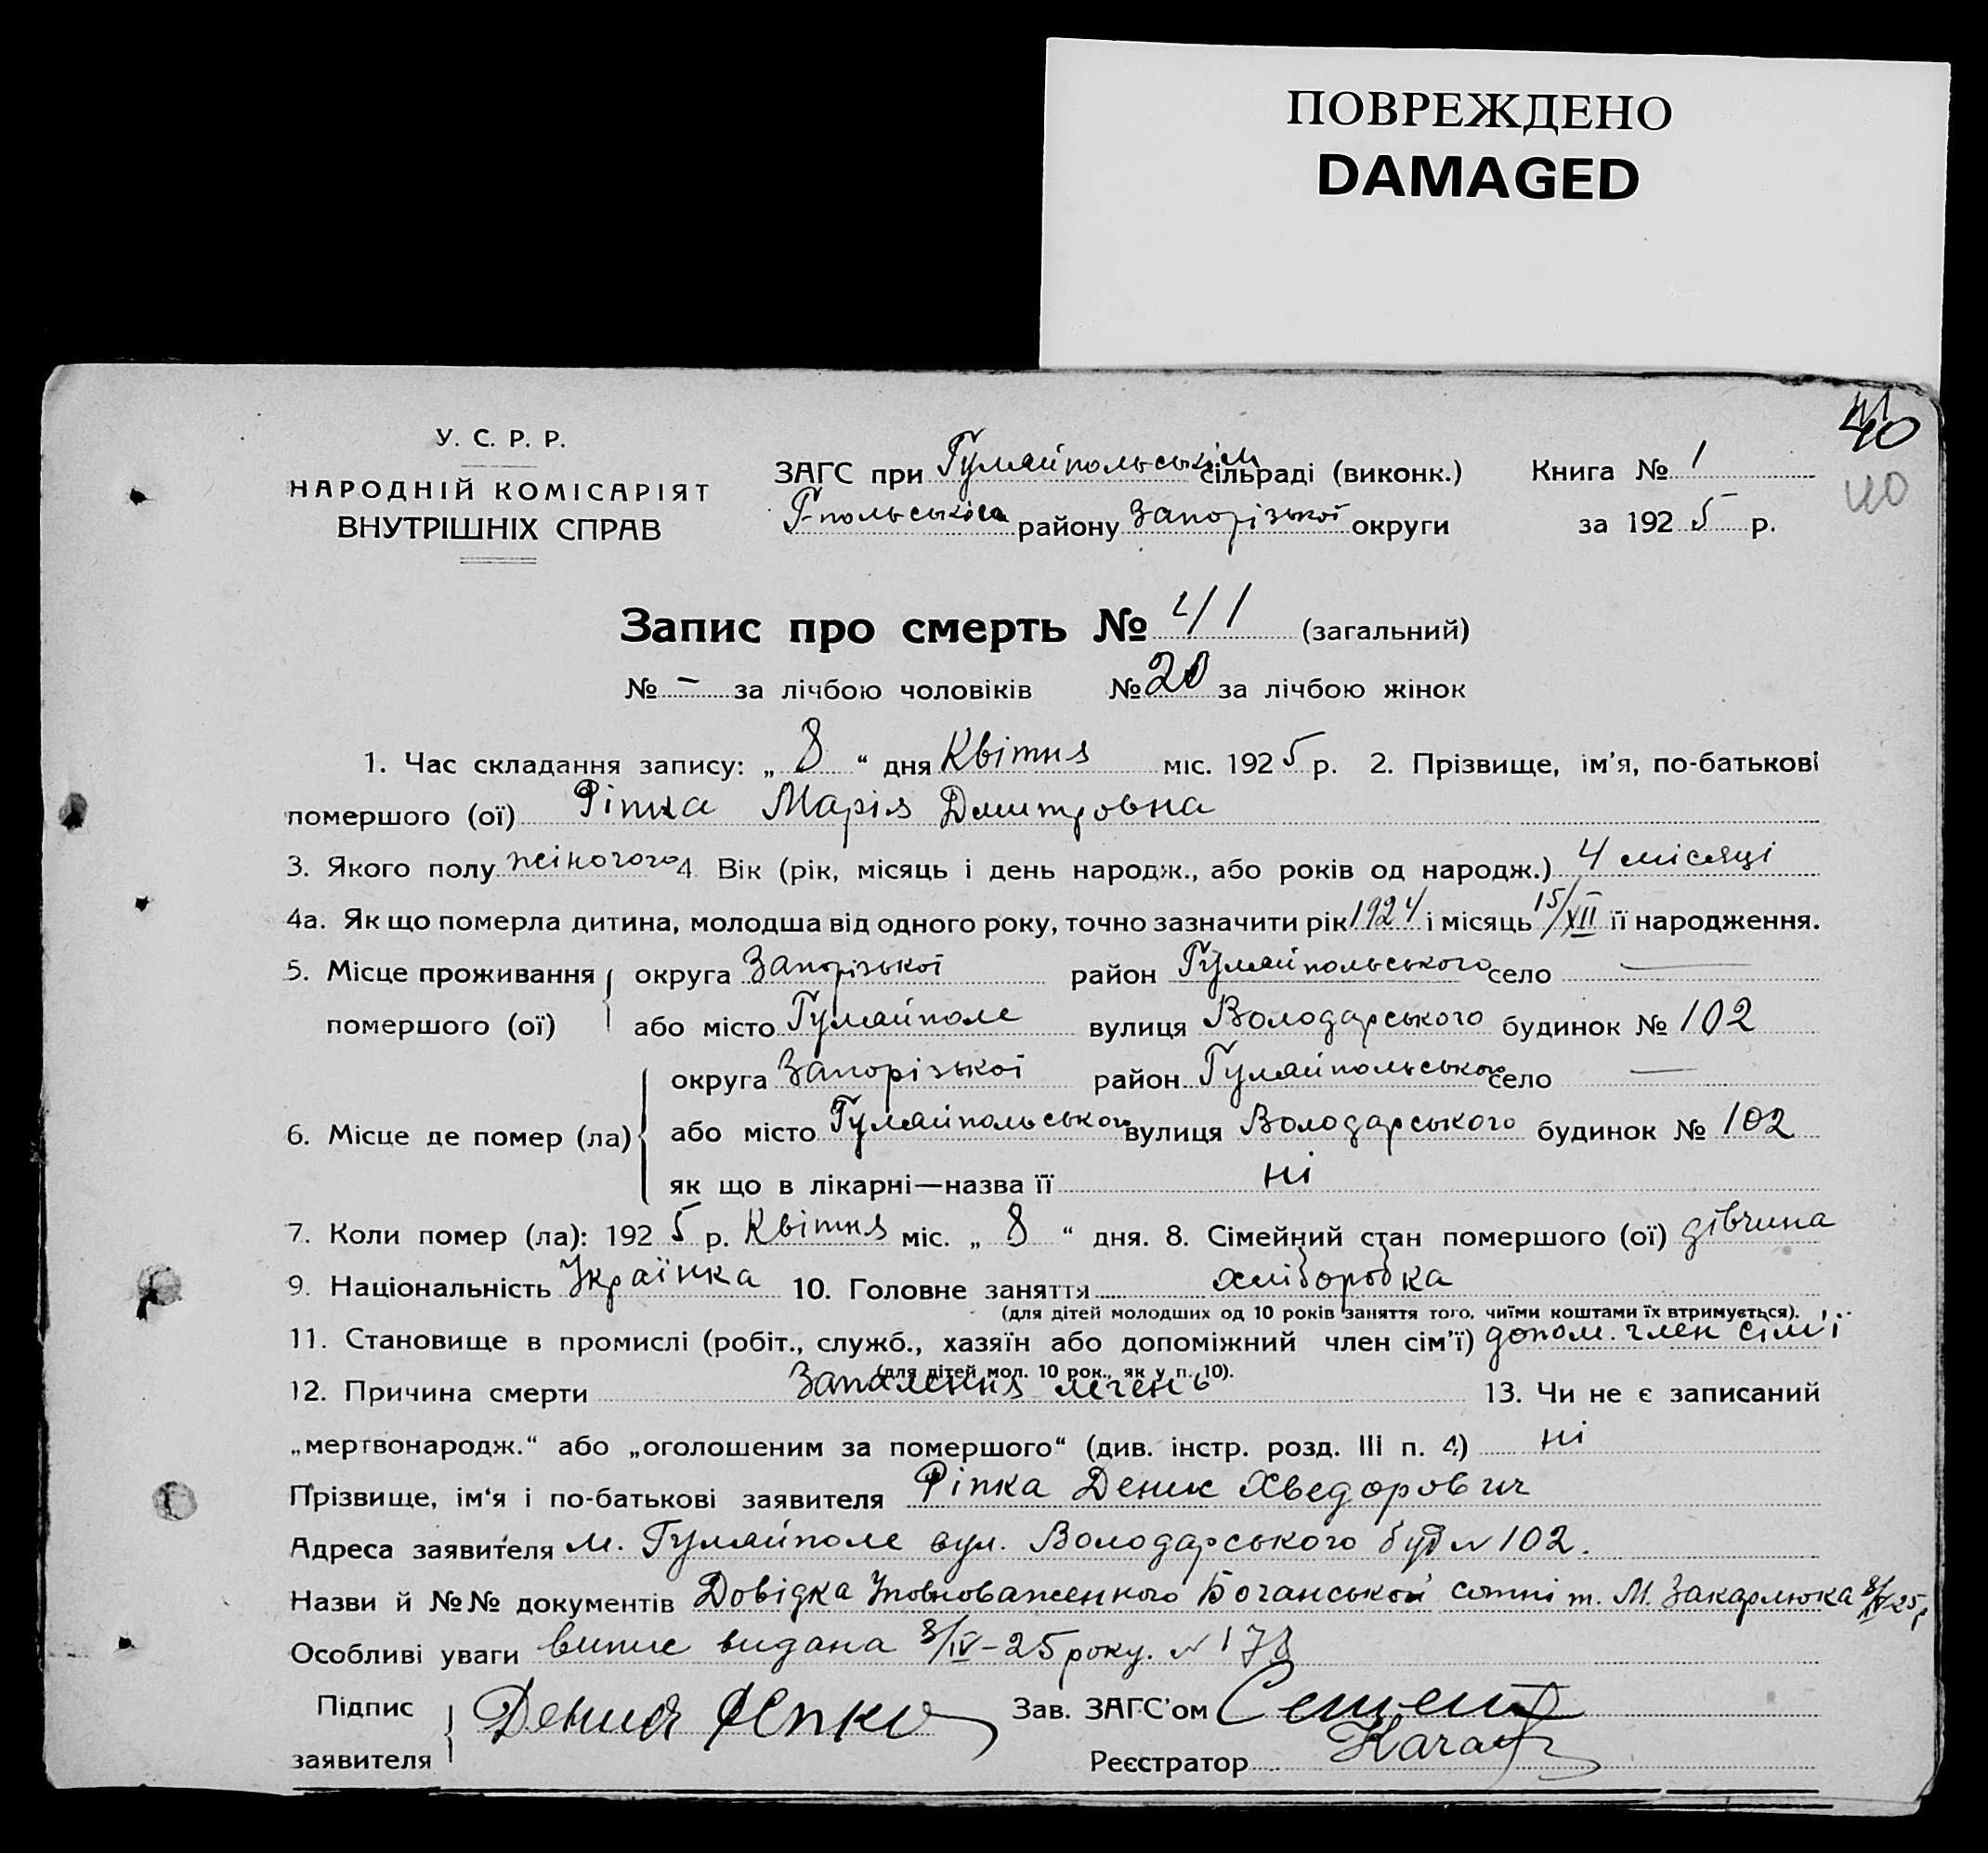 ПОВРЕЖДЕНО
DAMAGED
41
40
40
У. С. Р. Р.
НАРОДНІЙ КОМІСАРІЯТ
ВНУТРІШНІХ СПРАВ
ЗАГС при Гуляйпольськім сільраді (виконк.) Книга № 1
Г-польського району Запорізької округи за 1925 р.
Запис про смерть № 41 (загальний)
№ – за лічбою чоловіків № 20 за лічбою жінок
1. Час складання запису: „ 8 “ дня Квітня міс. 1925 р. 2. Прізвище, ім’я, по-батькові
помершого (ої) Ріпка Марія Дмитровна
3. Якого полу жіночого 4. Вік (рік, місяць і день народж., або років од народж.) 4 місяці
4а. Як що померла дитина, молодша від одного року, точно зазначити рік 1924 і місяць 15/XII її народження.
5. Місце проживання округа Запорізької район Гуляйпольського село —
помершого (ої) або місто Гуляйполе вулиця Володарського будинок № 102
округа Запорізької район Гуляйпольського село —
6. Місце де помер (ла) або місто Гуляйпольського вулиця Володарського будинок № 102
як що в лікарні—назва її ні
7. Коли помер (ла): 1925 р. Квітня міс. „ 8 “ дня. 8. Сімейний стан помершого (ої) дівчина
9. Національність Українка 10. Головне заняття хліборобка
(для дітей молодших од 10 років заняття того, чиїми коштами їх втримується).
11. Становище в промислі (робіт., служб., хазяїн або допоміжний член сім’ї) допом. член сім'ї
(для дітей мол. 10 рок., як у п. 10).
12. Причина смерти Запалення лёгень 13. Чи не є записаний
„мертвонародж.“ або „оголошеним за помершого“ (див. інстр. розд. III п. 4) ні
Прізвище, ім‘я і по-батькові заявителя Ріпка Денис Хведорович
Адреса заявителя м. Гуляйполе вул. Володарського буд № 102.
Назви й №№ документів Довідка Уповноваженного Бочанської сотні т. М. Закарлюка 8/IV-25 р
Особливі уваги випис видана 8/IV–25 року. № 178
Підпис заявителя Зав. ЗАГС’ом
Реєстратор